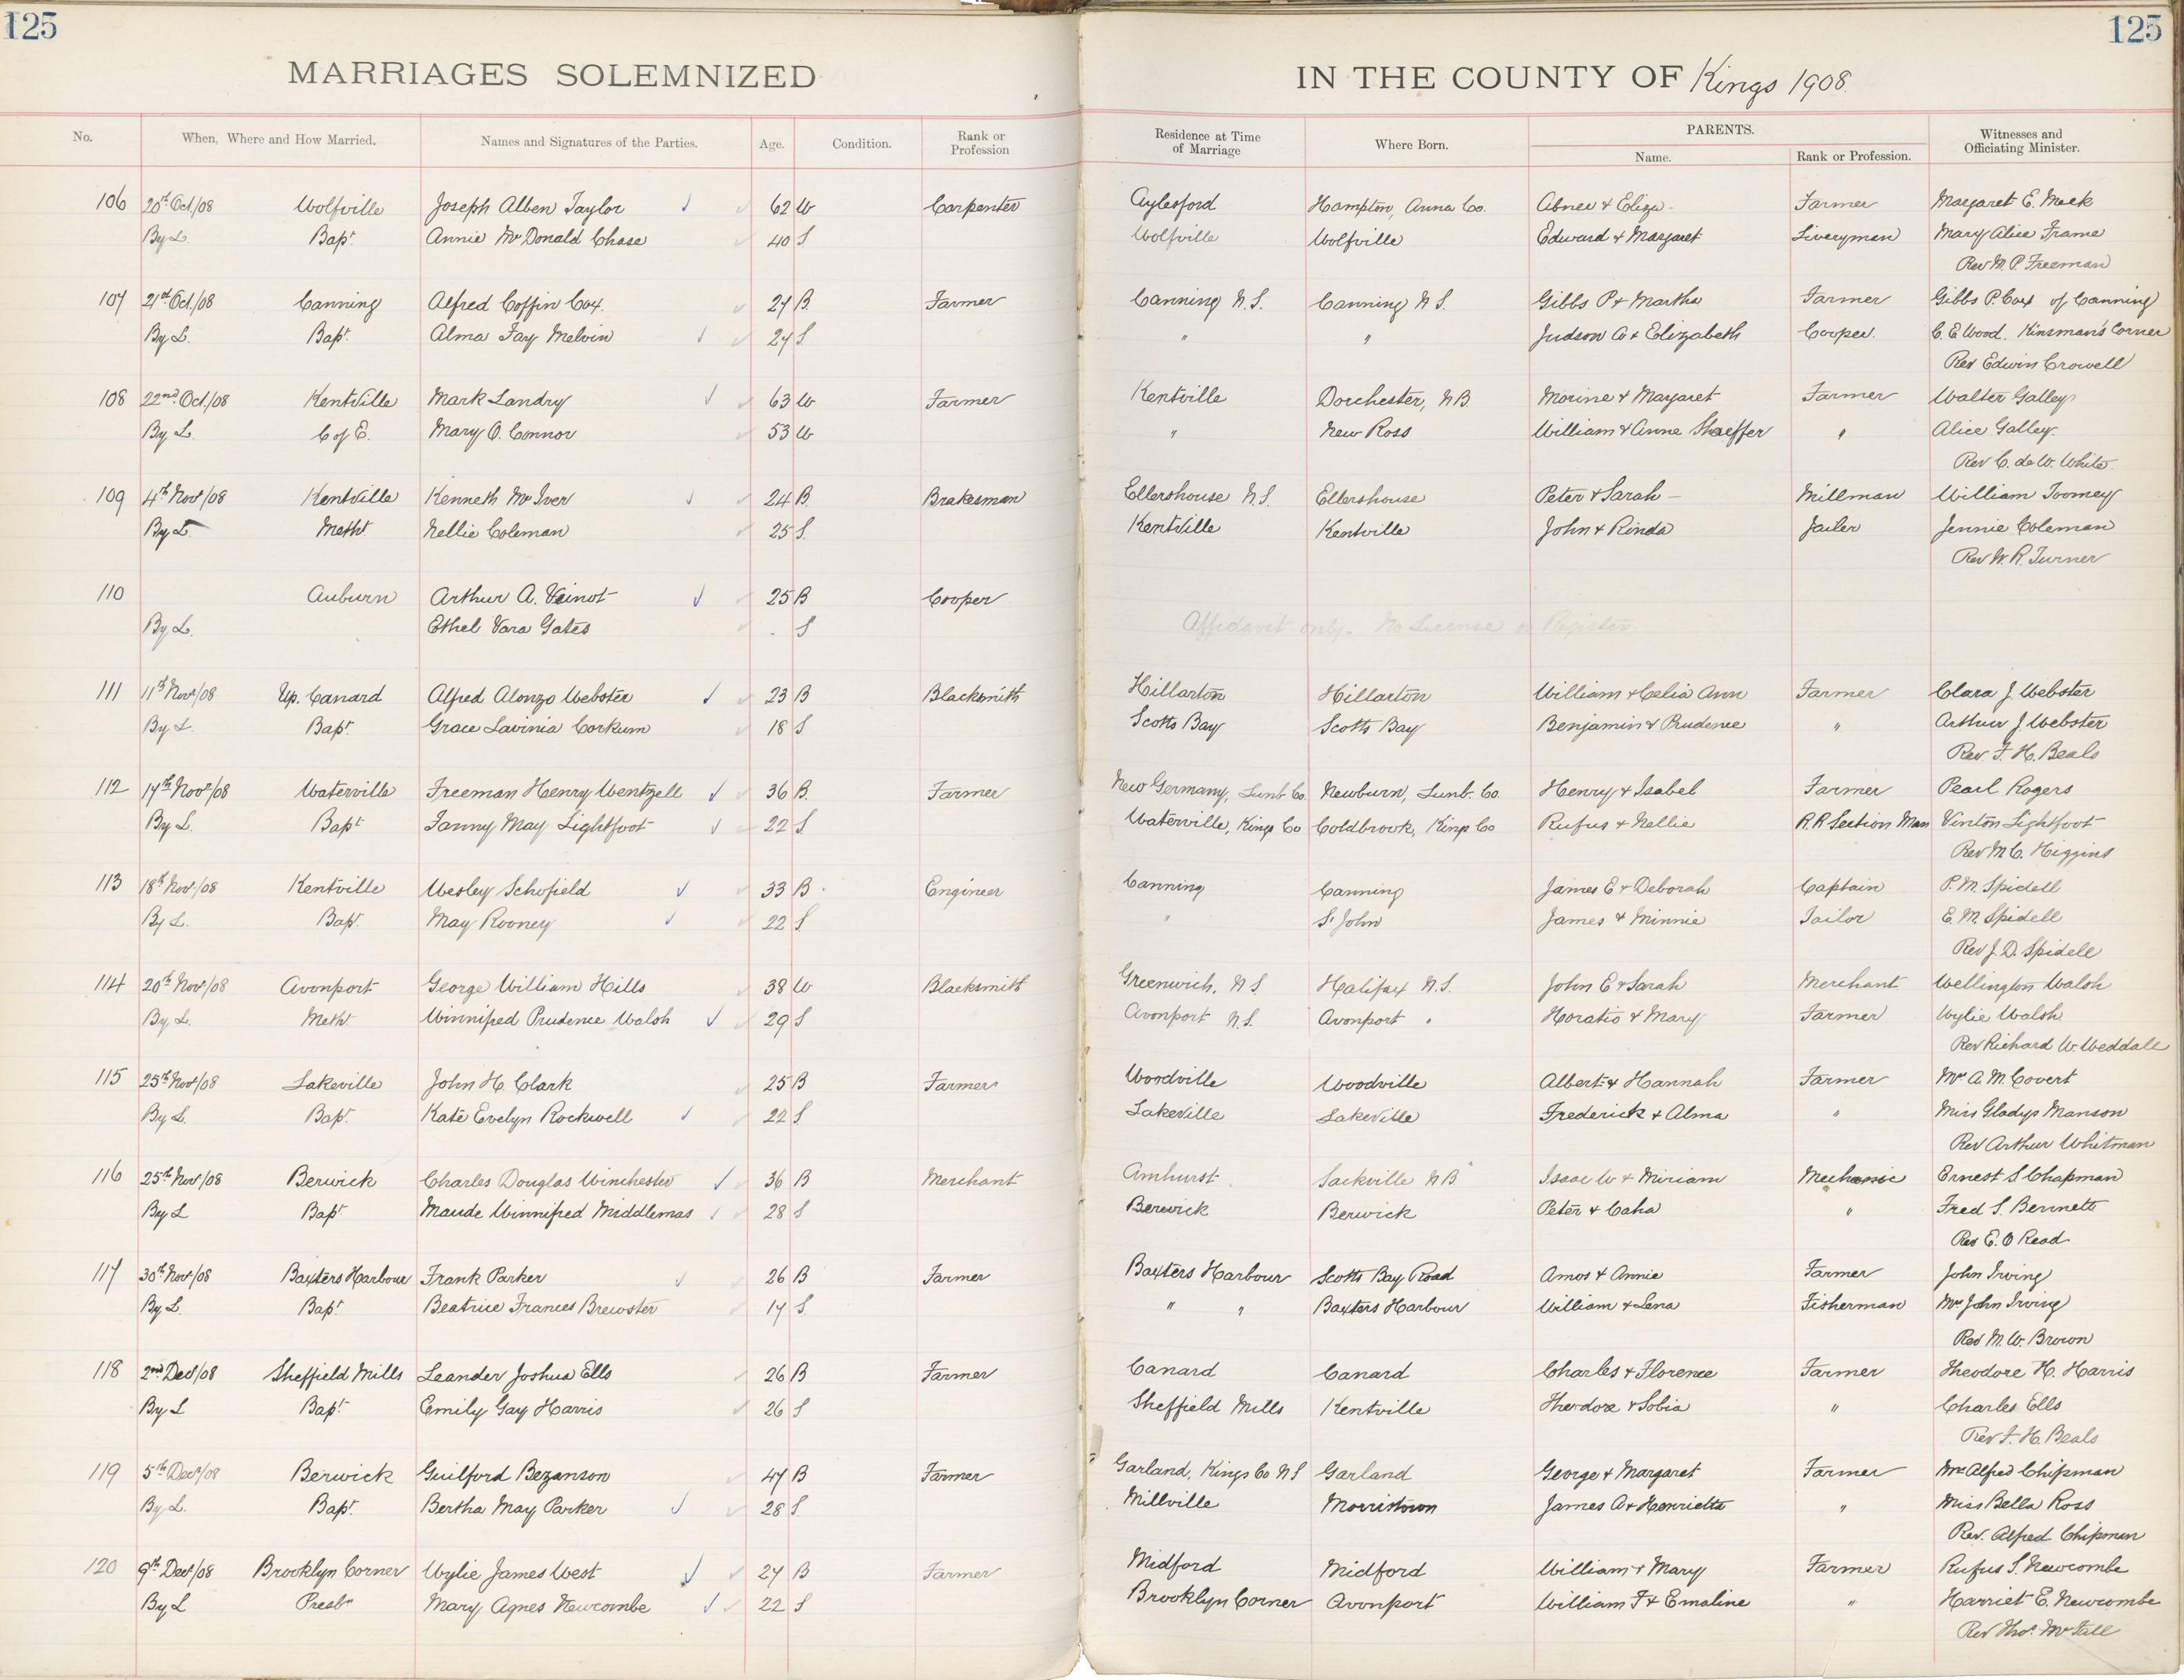 125 125
MARRIAGES SOLEMNIZED IN THE COUNTY OF Kings 1908.
No. When, Where and How Married. Names and Signatures of the Parties. Age. Condition. Rank or Profession Residence at Time of Marriage Where Born. PARENTS. Name. Rank or Profession. Witnesses and Officiating Minister.
106 20th Oct/08 Wolfville Joseph Alben Taylor 62 W Carpenter Aylesford Hampton, Anna Co. Abner & Eliza Farmer Margaret E. Meek
By L. Bapt Annie McDonald Chase 40 S Wolfville Wolfville Edward & Margaret Liveryman Mary Alice Frame
Rev M. P. Freeman
107 21st Oct/08 Canning Alfred Coffin Cox. 27 B. Farmer Canning N.S. Canning N.S. Gibbs P & Martha Farmer Gibbs P. Cox of Canning
By L. Bapt Alma Fay Melvin 27 S. " " Judson A & Elizabeth Cooper. C. E. Wood. Kinsman's Corner
Rev Edwin Crowell
108 22nd Oct/08 Kentville Mark Landry 63 W Farmer Kentville Dorchester, N.B. Morine & Margaret Farmer Walter Galley
By L. C of E. Mary O. Connor 53 W " New Ross William & Anne Shaeffer " Alice Galley.
Rev C. de W. White.
109 4th Nov/08 Kentville Kenneth McIver 24 B. Brakesman Ellershouse N.S. Ellershouse Peter & Sarah Millman William Toomey
By L Meth. Nellie Coleman 25 S. Kentville Kentville John & Rinda Jailer Jennie Coleman
Rev W. R. Turner
110 Auburn Arthur A. Veinot 25 B Cooper
By L. Ethel Vara Gates . S Affidavit only. No License or Register
111 11th Nov/08 Up. Canard Alfred Alonzo Webster 23 B Blacksmith Hillarton Hillarton William & Celia Ann Farmer Clara J. Webster
By L. Bapt Grace Lavinia Corkum 18 S Scotts Bay Scotts Bay Benjamin & Prudence " Arthur J Webster
Rev. F. H. Beals
112 17th Nov/08 Waterville Freeman Henry Wentzell 36 B. Farmer New Germany, Lunb. Co. Newburn, Lunb. Co. Henry & Isabel Farmer Pearl Rogers
By L. Bapt Fanny May Lightfoot 22 S Waterville, Kings Co Coldbrook, Kings Co Rufus & Nellie R.R Section Man Vinton Lightfoot
Rev M. C. Higgins
113 18th Nov/08 Kentville Wesley Schofield 33 B. Engineer Canning Canning James E & Deborah Captain P. M. Spidell
By L. Bapt. May Rooney 22 S. " St John James & Minnie Tailor E. M. Spidell
Rev J. D. Spidell
114 20th Nov/08 Avonport George William Hills 38 W Blacksmith Greenwich, N.S. Halifax N.S. John E & Sarah Merchant Wellington Walsh
By L. Meth. Winnifred Prudence Walsh 29 S Avonport N.S. Avonport " Horatio & Mary Farmer Wylie Walsh
Rev Richard W. Weddall
115 25th Nov/08 Lakeville John H. Clark 25 B Farmer Woodville Woodville Albert & Hannah Farmer Mr A. M. Covert
By L. Bapt. Kate Evelyn Rockwell 22 S. Lakeville Lakeville Frederick & Alma " Miss Gladys Manson
Rev Arthur Whitman
116 25th Nov/08 Berwick Charles Douglas Winchester 36 B Merchant Amhurst Sackville NB Isaac W & Miriam Mechanic Ernest S Chapman
By L Bapt Maude Winnifred Middlemas 28 S Berwick Berwick Peter & Caha " Fred S. Bennett
Rev E. O Read
117 30th Nov/08 Baxters Harbour Frank Parker 26 B Farmer Baxters Harbour Scotts Bay Road Amos & Annie Farmer John Irving
By L. Bapt. Beatrice Frances Brewster 17 S. " " Baxters Harbour William & Lena Fisherman Mrs John Irving
Rev M. W. Brown
118 2nd Dec/08 Sheffield Mills Leander Joshua Ells 26 B Farmer Canard Canard Charles & Florence Farmer Theodore H. Harris
By L Bapt. Emily Gay Harris 26 S Sheffield Mills Kentville Theodore & Sobia " Charles Ells
Rev F. H. Beals
119 5th Dec/08 Berwick Guilford Bezanson 47 B Farmer Garland, Kings Co NS Garland George & Margaret Farmer Mrs Alfred Chipman
By L. Bapt. Bertha May Parker 28 S. Millville Morristown James A & Henrietta " Miss Bella Ross
Rev. Alfred Chipman
120 9th Dec/08 Brooklyn Corner Wylie James West 27 B Farmer Midford Midford William & Mary Farmer Rufus S. Newcombe
By L Presbn Mary Agnes Newcombe 22 S Brooklyn Corner Avonport William F & Emaline " Harriet E. Newcombe
Rev Thos. McFall